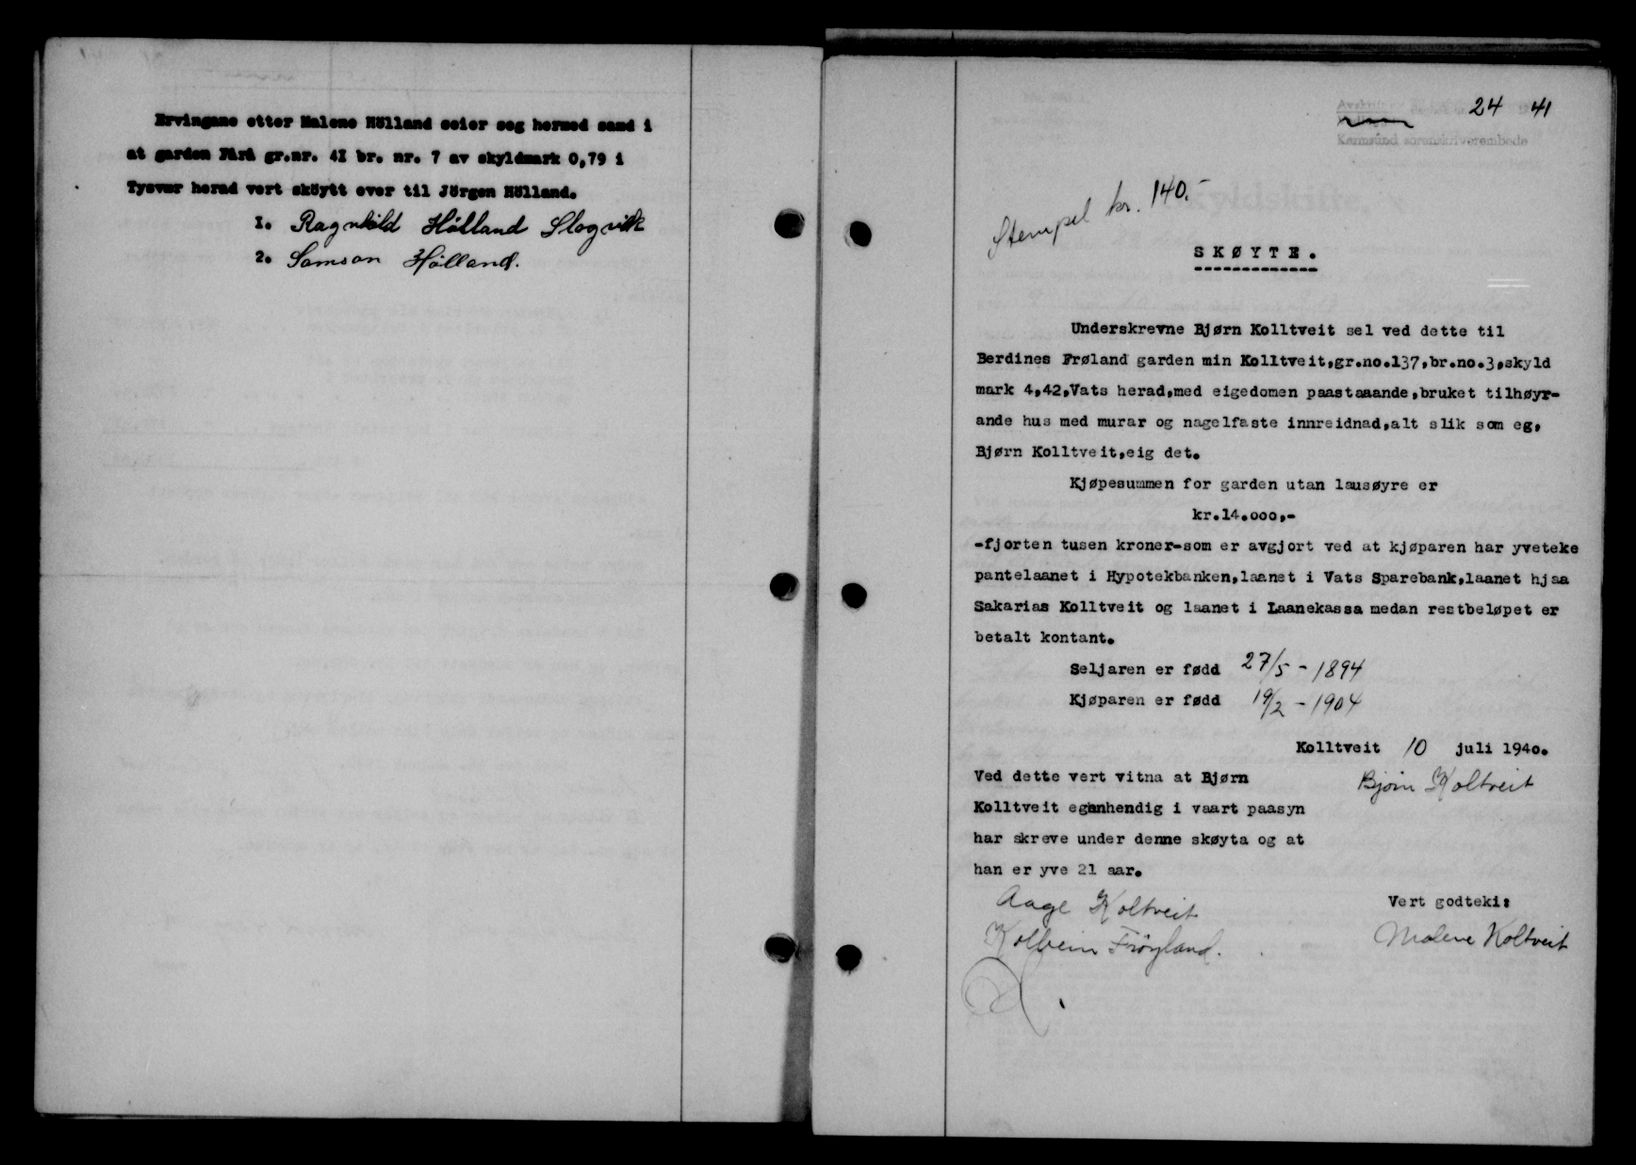 Ervingane etter Malene Hölland seier seg hermed samd i
at garden Fårå gr.nr. 4I br. nr. 7 av skyldmark 0,79 i
Tysvær herad vert sköytt over til Jörgen Hölland.
1. Ragnhild Hölland Slogvik
2. Samson Hölland.
24 41
Karmsund sorenskriverembede
Stempel kr. 140.-
SKØYTE.
Underskrevne Bjørn Kolltveit sel ved dette til
Berdines Frøland garden min Kolltveit,gr.no.137,br.no.3,skyld
mark 4,42,Vats herad,med eigedomen paastaaande,bruket tilhøyr-
ande hus med murar og nagelfaste innreidnad,alt slik som eg,
Bjørn Kolltveit,eig det.
Kjøpesummen for garden utan lausøyre er
kr.14.000,-
-fjorten tusen kroner-som er avgjort ved at kjøparen har yveteke
pantelaanet i Hypotekbanken,laanet i Vats Sparebank,laanet hjaa
Sakarias Kolltveit og laanet i Laanekassa medan restbeløpet er
betalt kontant.
Seljaren er fødd 27/5 - 1894
Kjøparen er fødd 19/2 - 1904
Kolltveit 10 juli 1940.
Ved dette vert vitna at Bjørn
Bjørn Koltveit
Kolltveit egenhendig i vaart paasyn
har skreve under denne skøyta og at
han er yve 21 aar.
Aage Koltveit
Vert godteki:
Kolbein Frøyland.
Malene Koltveit